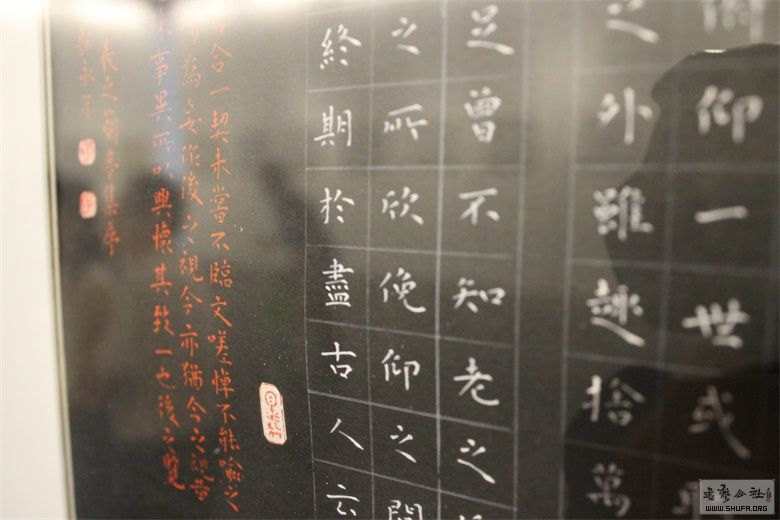 仰一世或
之外雖趣捨萬
足曾不知老之
之所欣俛仰之間
終期於盡古人云
合一契未嘗不臨文嗟悼不能喻之
為妄作後之視今亦猶今之視昔
事異所以興懷其致一也後之覽
羲之蘭亭集序
WWW.SHUFA.ORG